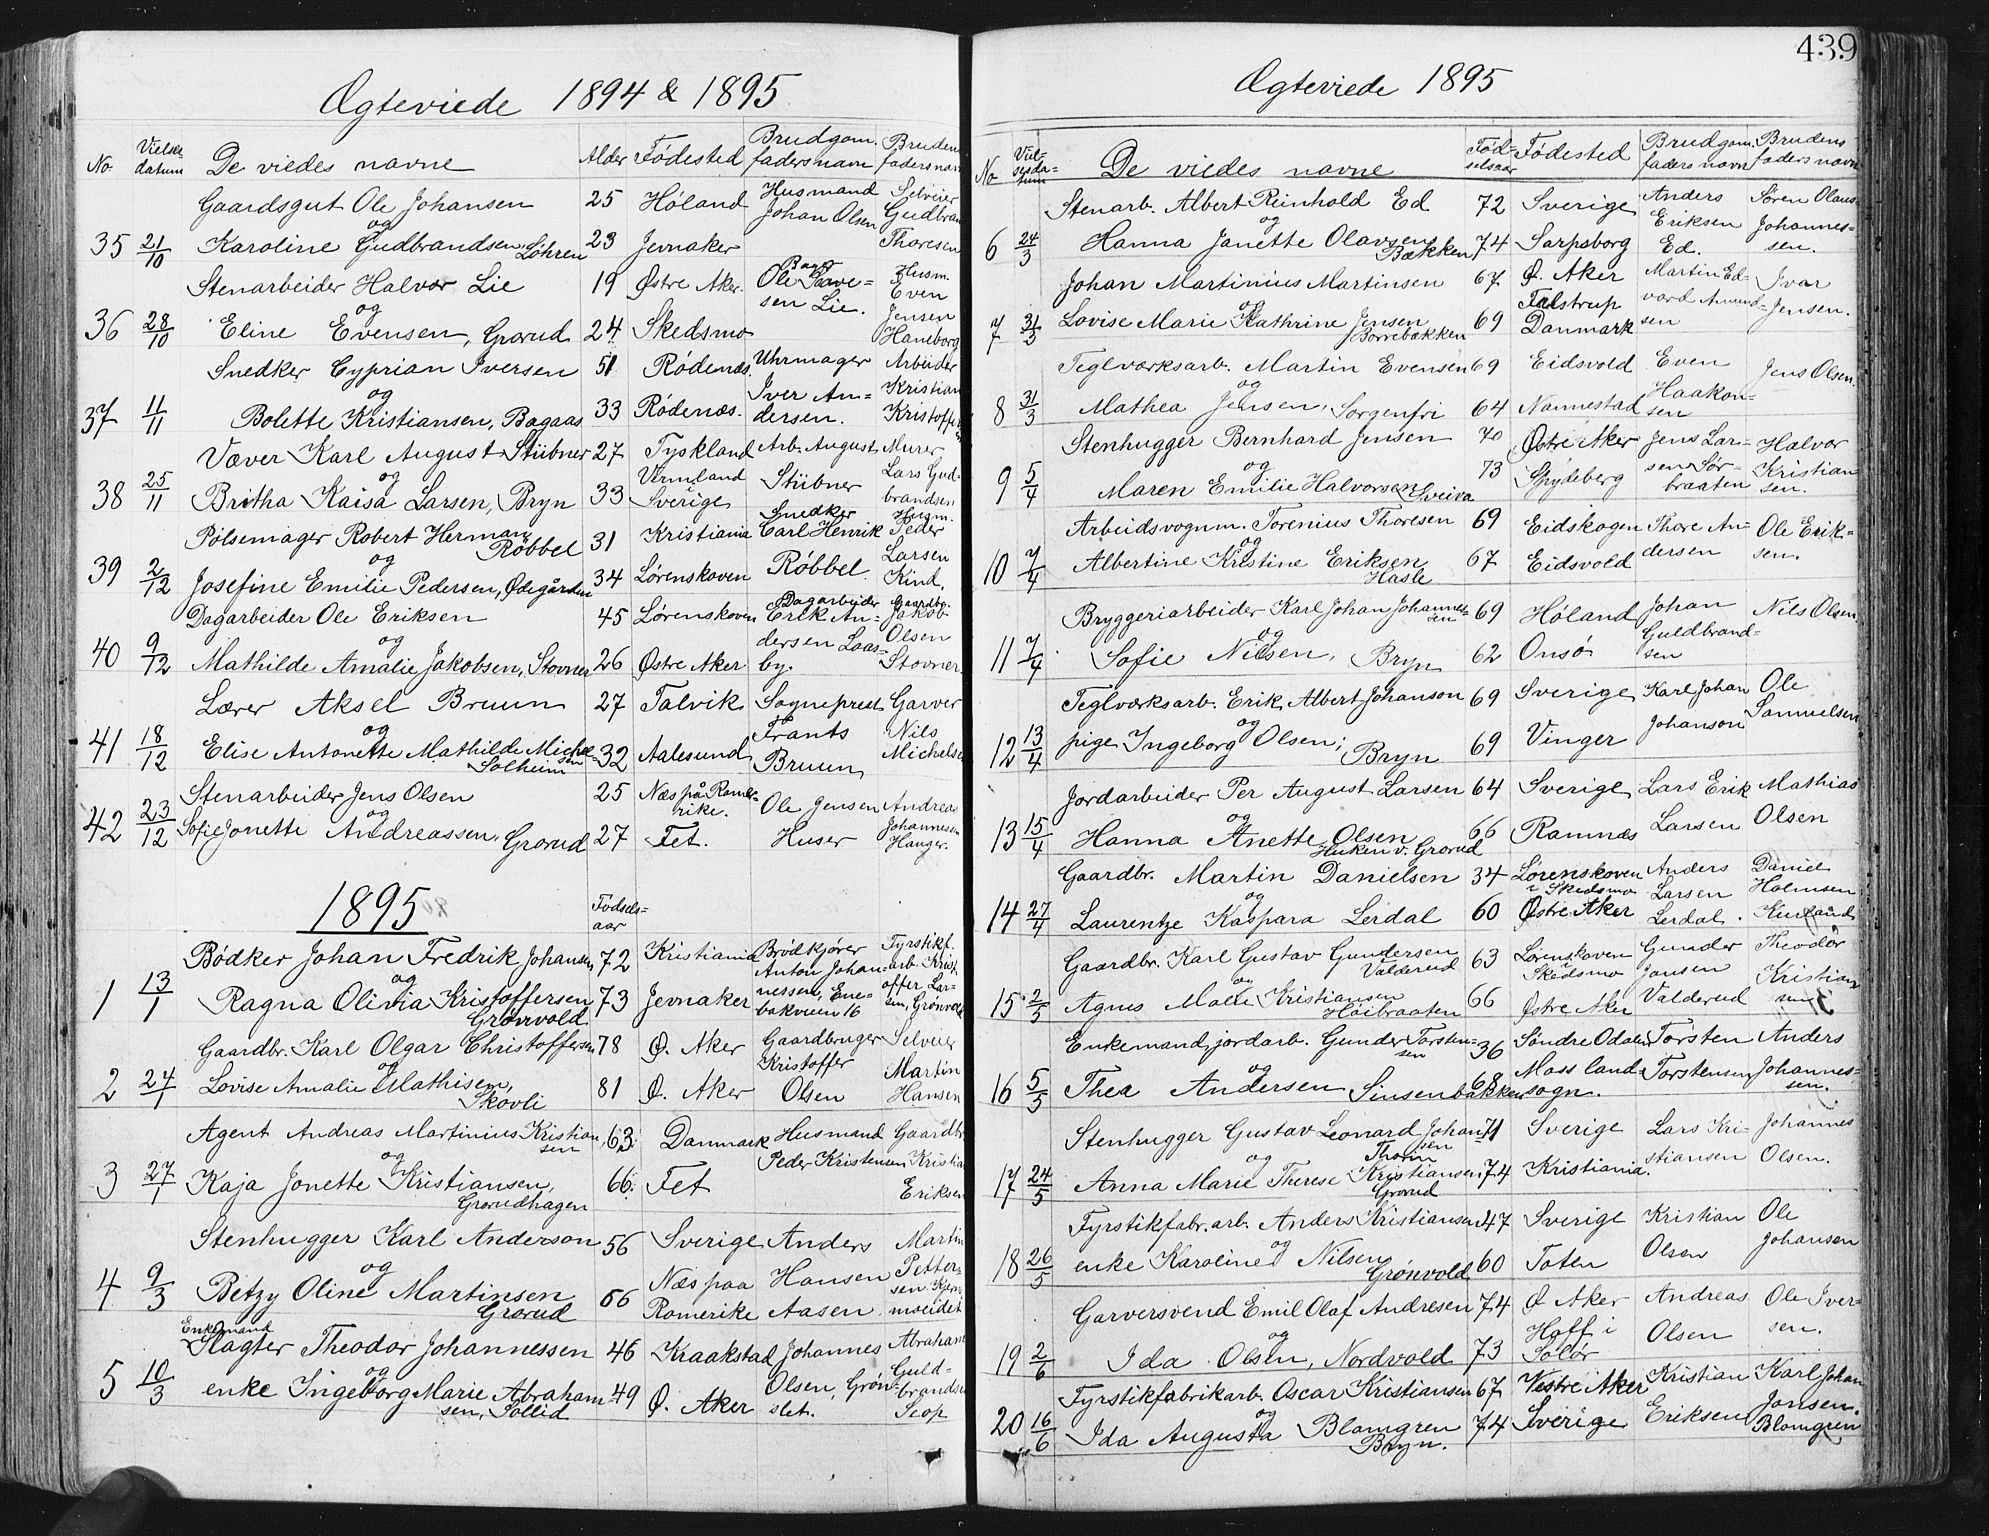 Ægteviede 1894 & 1895
No Vielsesdatum De viedes navne Alder Fødested Brudgom. fadersnavn Brudens fadersnavn
Gaardsgut Ole Johansen 25 Høland Husmand Johan Olsen Selveier Gudbran
og
35 21/10 Karoline Gudbrandsen, Løhren 23 Jevnaker Thoresen
Stenarbeider Halvor Lie 19 Østre Aker. Bager Ole Paavesen Lie. Husm. Even
og
36 28/10 Eline Evensen, Grorud 24 Skedsmo Jensen Haneborg
Snedker Cyprian Iversen 51 Rødenæs. Uhrmager Iver Andersen. Arbeider
og
37 11/11 Bolette Kristiansen, Bagaas 33 Rødenæs. Kristian Kristoffersen
Væver Karl August Stübner 27 Tyskland Arb. August Stübner Murer
og
38 25/11 Britha Kaisa Larsen, Bryn 33 Vermland Sverige Lars Gudbrandsen
Pølsemager Robert Herman Røbbel 31 Kristiania Snedker Carl Henrik Røbbel Husm. Peder
og
39 2/12 Josefine Emilie Pedersen, Ødegården 34 Lørenskoven Larsen Kind.
Dagarbeider Ole Eriksen 45 Lørenskoven Dagarbeider Erik Andersen Laasby. Gaardbr. Jakob
og
40 9/12 Mathilde Amalie Jakobsen, Stovner 26 Østre Aker Olsen Stovner
Lærer Aksel Bruun 27 Talvik Sogneprest Frants Bruun Garver
og
41 18/12 Elise Antonette Mathilde Michelsen Solheim 32 Aalesund Nils Michelse
Stenarbeider Jens Olsen 25 Næs på Romerike. Ole Jensen Huser Andreas
og
42 23/12 Sofie Jonette Andreassen, Grorud 27 Fet. Johannesen Hauger.
1895 Fødselsaar
Bødker Johan Fredrik Johansen 72 Kristiania Brødkjører Anton Johannessen, Enebakveien 16 Fyrstikf. arb. Krist
og
1 13/1 Ragna Olivia Kristoffersen Grønvold 73 Jevnaker offer Larsen, Grønvold
Gaardbr. Karl Olgar Christoffersen 78 Ø. Aker Gaardbruger Kristoffer Olsen Selveier
og
2 24/1 Lovise Amalie Mathisen, Skovli 81 Ø. Aker Martin Hansen
Agent Andreas Martinius Kristiansen 63 Danmark Husmand Peder Kristensen Gaardbr
og
3 27/1 Kaja Jonette Kristiansen, Grorudhagen 66. Fet Kristia Eriksen
Stenhugger Karl Anderson 56 Sverige Anders Hansen Aasen Martin
og
4 9/3 Betzy Oline Martinsen Grorud 66 Næs paa Romerike Pettersen
Enkemand
Slagter Theodor Johannessen 46 Kraakstad Johannes Olsen, Grønslet. Abraham
og
5 10/3 enke Ingeborg Marie Abrahamsen, Sollid 49 Ø. Aker Guldbrands
439
Ægteviede 1895
No Vielsesdatum De viedes navne Fødselsaar Fødested Brudgom. faders navn Brudens faders navn
Stenarb. Albert Reinhold Ed 72 Sverige Anders Eriksen Ed. Søren Olaus
og
6 24/3 Hanna Janette Olavsen Bækken 74 Sarpsborg Johannessen.
Johan Martinius Martinsen 67 Ø. Aker Martin Edvard Amundsen Ivar
og
7 31/3 Lovise Marie Kathrine Jensen Borrebakken 69 Falstrup Danmark Jensen.
Teglværksarb. Martin Evensen 69 Eidsvold Even Haakonsen Jens Olsen.
og
8 31/3 Mathea Jensen, Sorgenfri 64 Nannestad
Stenhugger Bernhard Jensen 70 Østre Aker Jens Larsen Sørbraaten Halvor
og
9 5/4 Maren Emilie Halvorsen Sveiva 73 Spydeberg Kristiansen.
Arbeidsvognm. Torenius Thoresen 69 Eidskogen Thore Andersen Ole Eriksen.
og
10 7/4 Albertine Kristine Eriksen Hasle 67 Eidsvold
Bryggeriarbeider Karl Johan Johannessen 69 Høland Johan Guldbrandsen Nils Olsen
og
11 7/4 Sofie Nilsen, Bryn 62 Onsø
Teglværksarb. Erik Albert Johanson 69 Sverige Karl Johan Johanson Ole
og
12 13/4 pige Ingeborg Olsen; Bryn 69 Vinger Samuelsen
Jordarbeider Per August Larsen 64 Sverige Lars Erik Larsen Mathias
og
13 15/4 Hanna Anette Olsen Huken v. Grorud 66 Ramnæs Olsen
Gaardbr. Martin Danielsen 34 Lørenskoven i Skedsmo Anders Larsen Lerdal. Daniel
og
14 27/4 Laurentze Kaspara Lerdal 60 Østre Aker Holmsen
Gaardbr. Karl Gustav Gundersen Valderud 63 Lørenskoven i Skedsmo Gunder Jansen Valderud Theodor
og
15 2/5 Agnes Kristiansen Høibraaten 66 Østre Aker Kristiansen
Enkemand, jordarb. Gunder Torstensen 36 Søndre Odalen Torsten Torstensen Anders
og
16 5/5 Thea Andersen Sinsenbakken 68 Moss landsogn. Johannessen.
Stenhugger Gustav Leonard Johansen Thorin 71 Sverige Lars Kristiansen Johannes
og
17 24/5 Anna Marie Therese Kristiansen Grorud 74 Kristiania. Olsen.
Fyrstikfabr. arb. Anders Kristiansen 47 Sverige Kristian Olsen Ole
og
18 26/5 enke Karoline Nilsen Grønvold 60 Toten Johansen
Garversvend Emil Olaf Andresen 74 Ø Aker Andreas Olsen Ole Iversen.
og
19 2/6 Ida Olsen, Nordvold 73 Hoff i Solør
Fyrstikfabrikarb. Oscar Kristiansen 67 Vestre Aker Kristian Eriksen Karl Johan
og
20 16/6 Ida Augusta Blomgren Bryn. 74 Sverige Jonsen. Blomgren